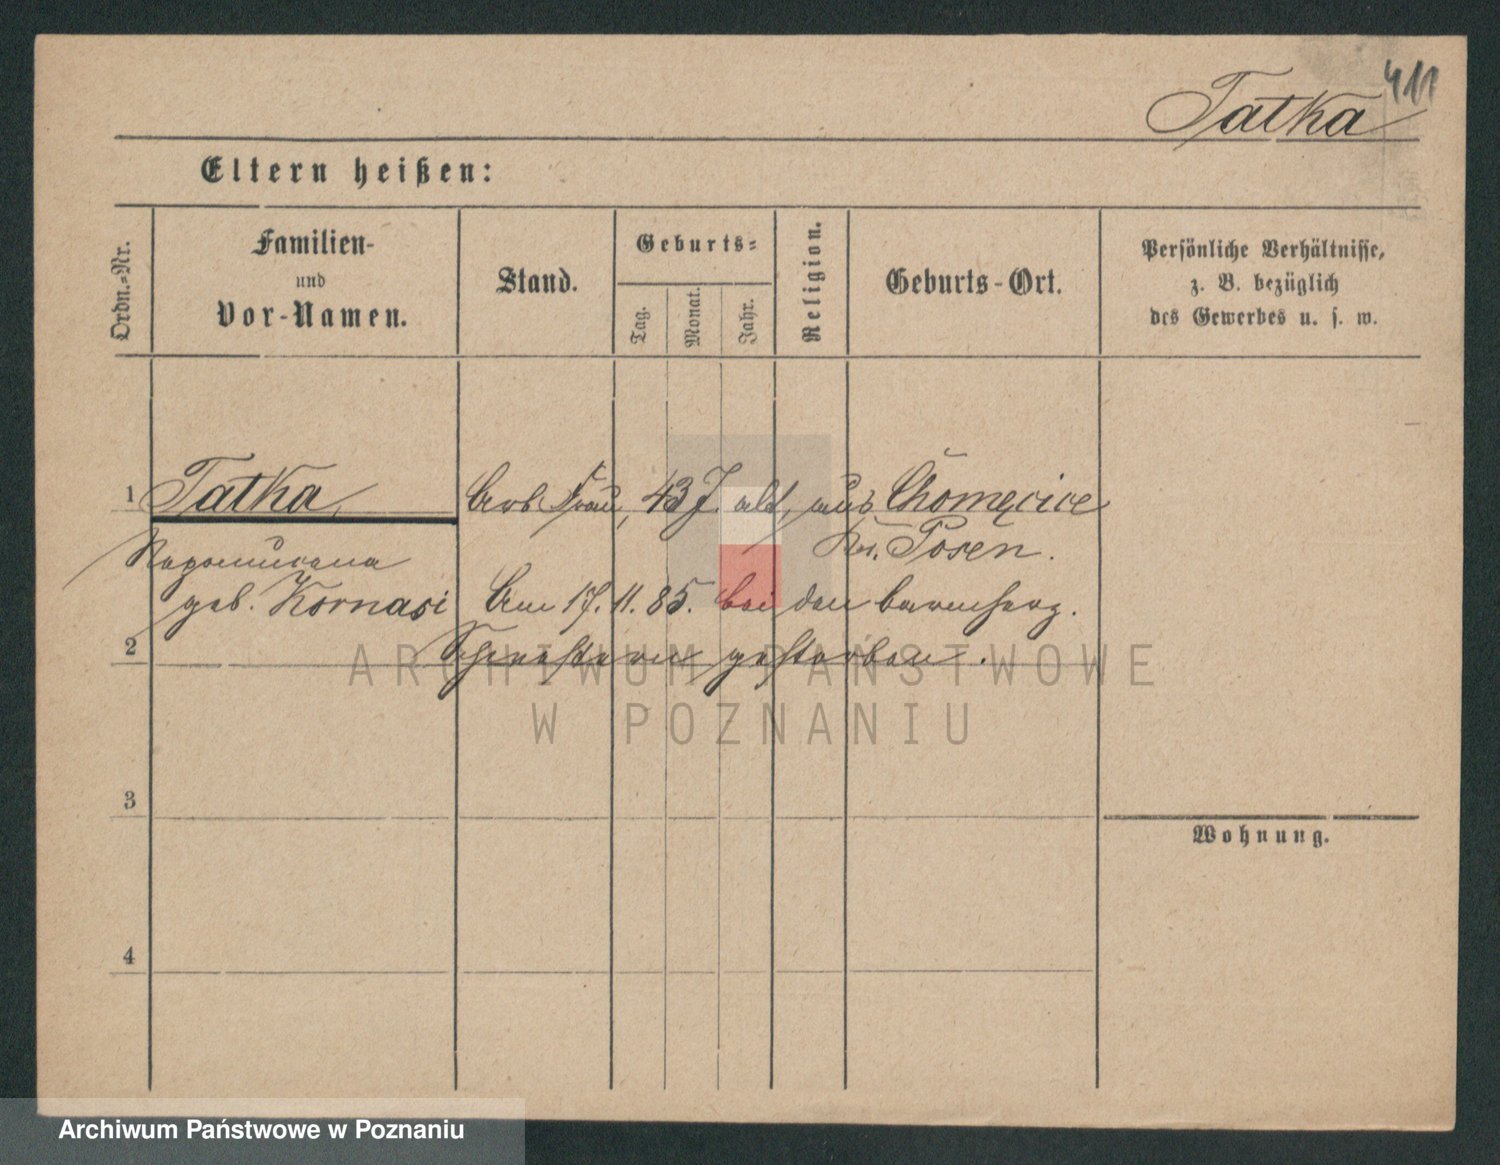 411
Tatka
Eltern heißen:
Ordn.-Nr.
Familien-
und
Vor-Namen.
Stand.
Geburts-
Tag.
Monat.
Jahr.
Religion.
Geburts-Ort.
Persönliche Verhältnisse,
z. B. bezüglich
des Gewerbes u. s. w.
1 Tatka Arb. Frau, 43 J. alt, aus Chomęcice
Posen.
geb. Kornasi Am 17. 11. 85. bei den barmherz.
2
Schwestern gestorben.
ARCHIWUM PAŃSTWOWE
W POZNANIU
3
Wohnung.
4
Archiwum Państwowe w Poznaniu